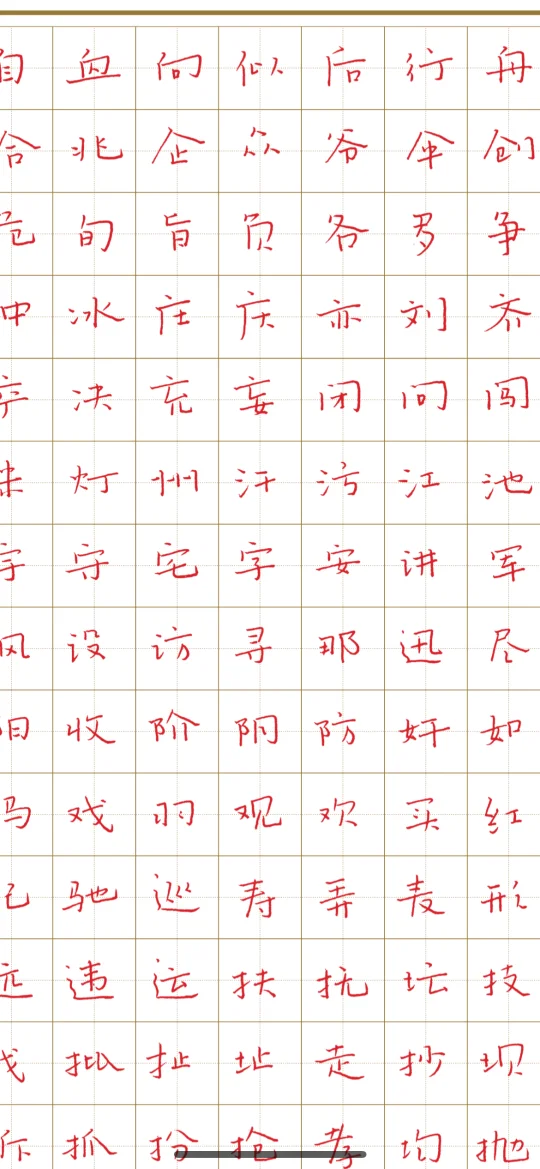 自血向似后行舟
合兆企众爷伞创
危旬旨负各罗争
冰庄庆亦刘齐
决充妄闭问闯
米灯州汗污江池
宇守宅字安讲军
设访寻那迅尽
收阶阴防奸如
戏羽观欢买红
驰巡寿弄麦形
远违运扶抚坛技
批扯址走抄坝
抓扮抢孝均抛